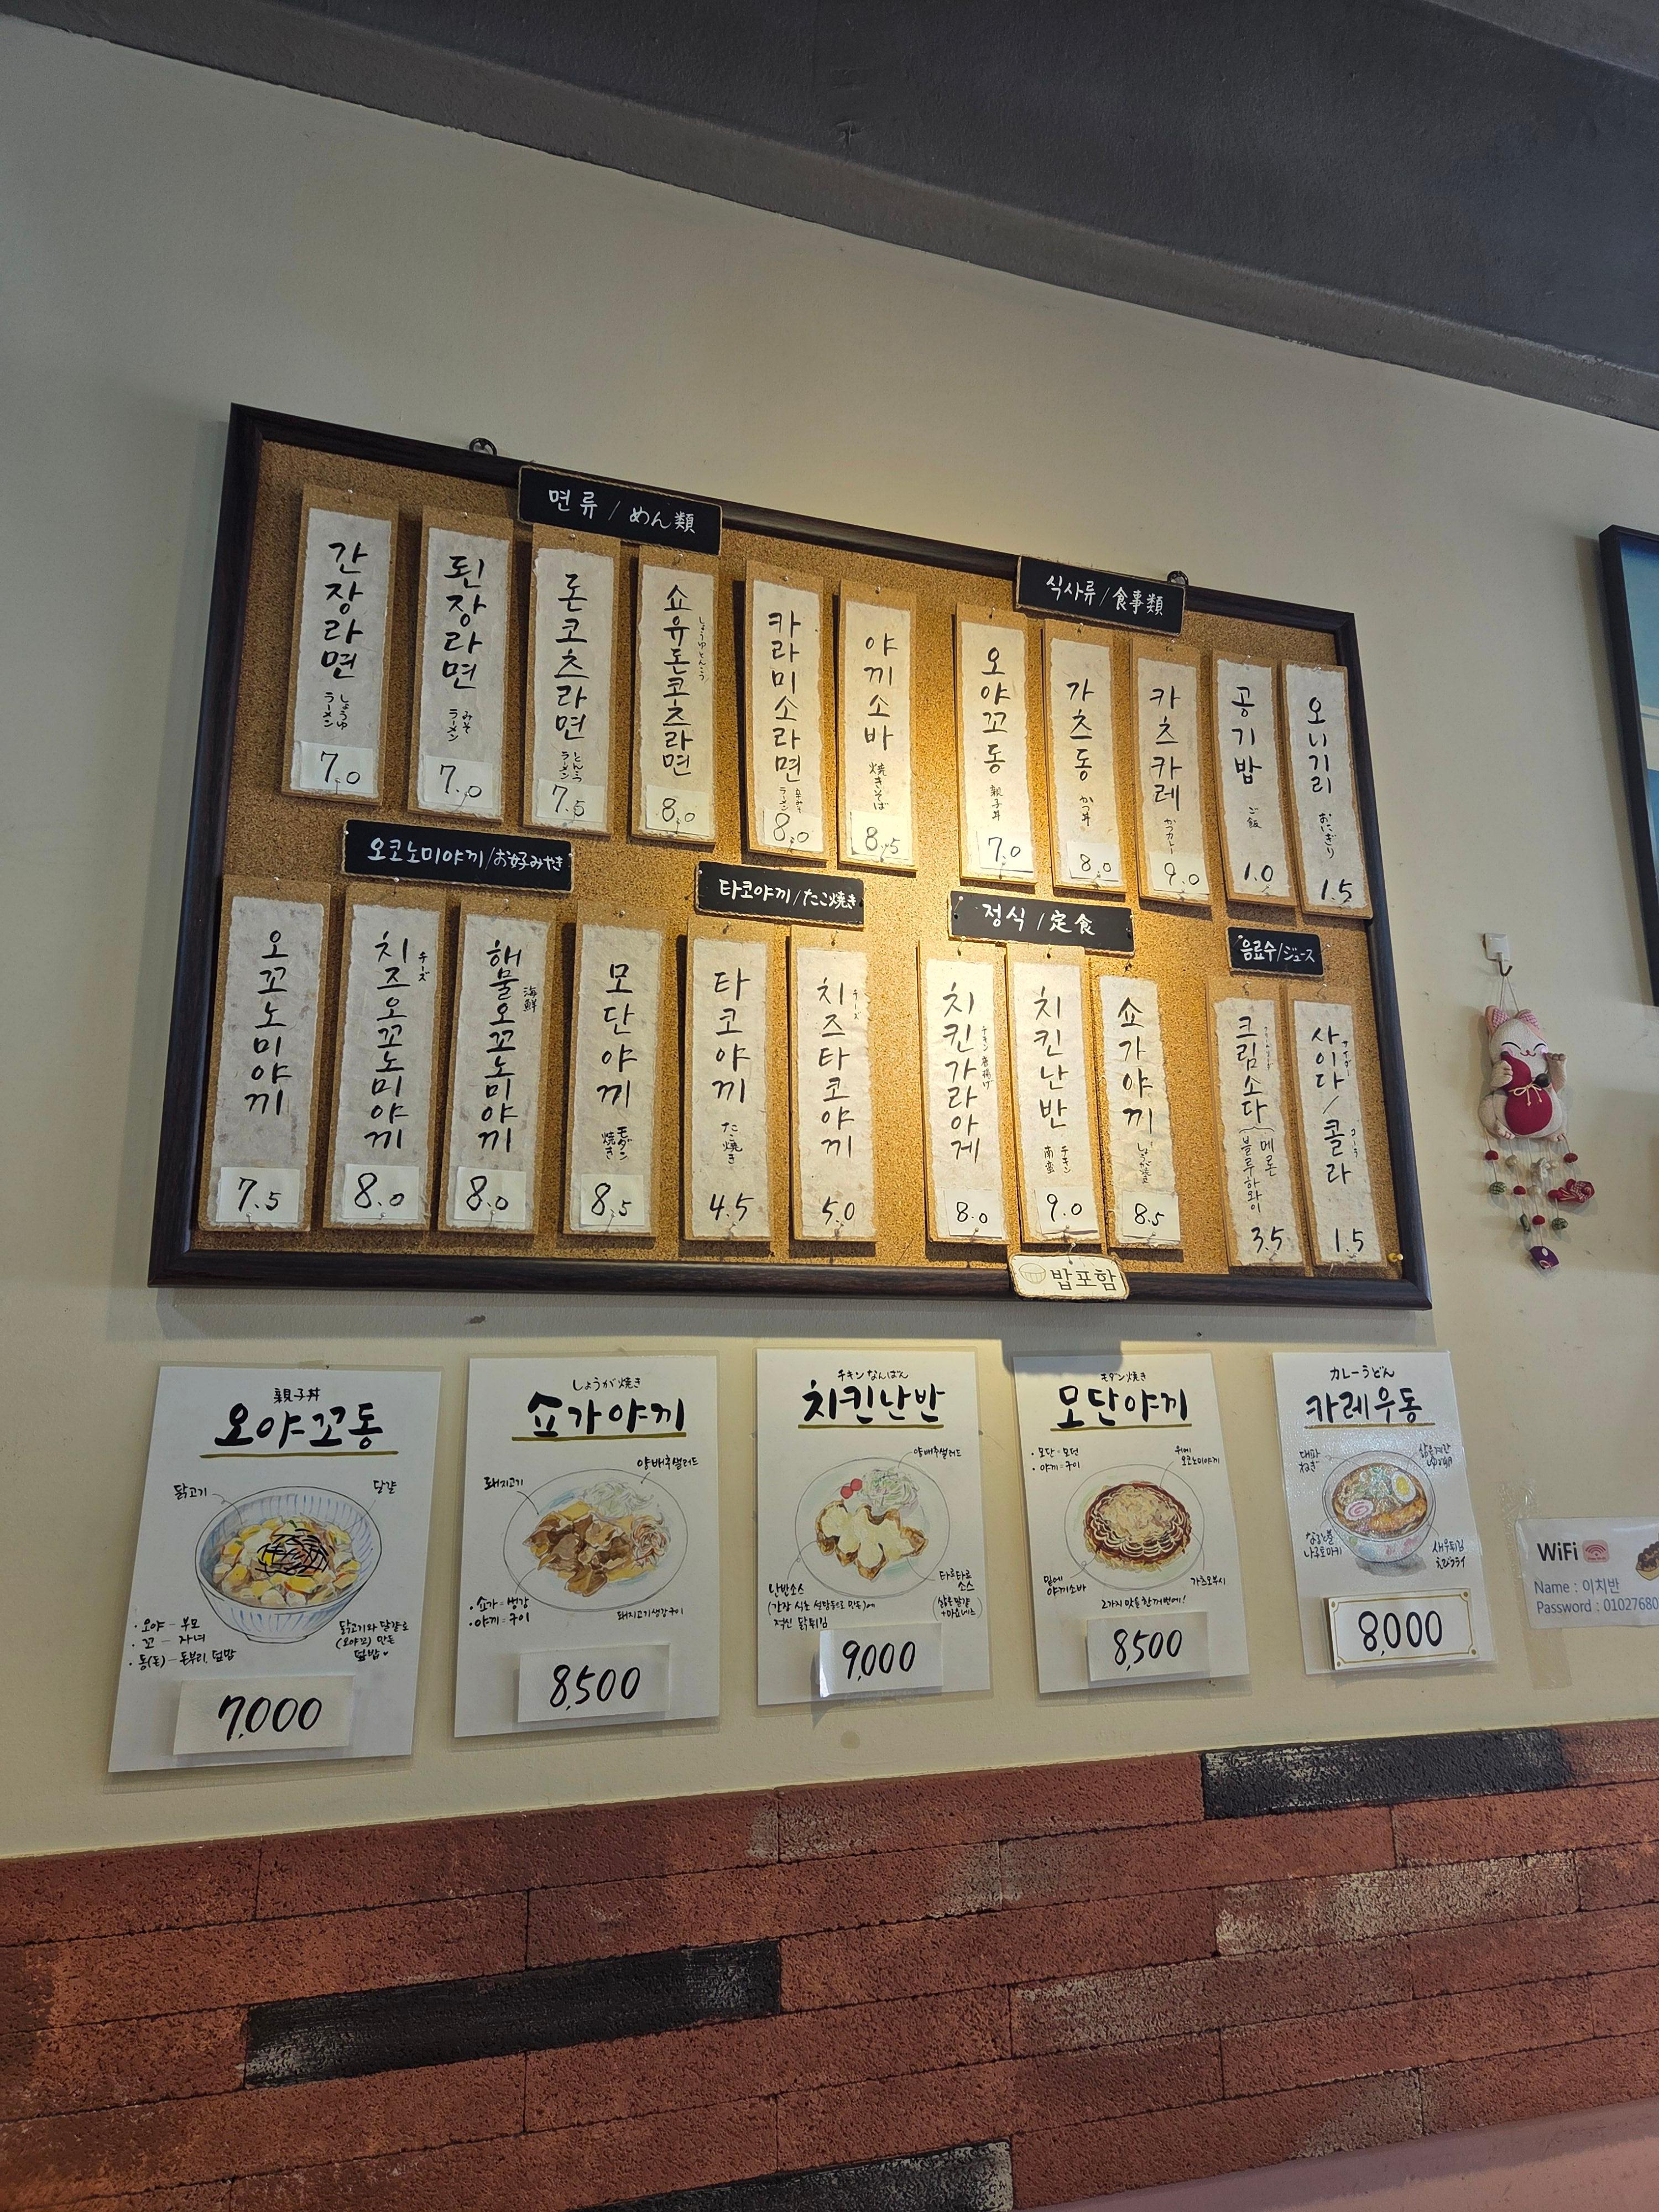 면류 / めん類
간장라면 しょうゆラーメン 7.0
된장라면 みそラーメン 7.0
돈코츠라면 とんこつラーメン 7.5
쇼유돈코츠라면 しょうゆとんこつ 8.0
카라미소라면 辛みそラーメン 8.0
야끼소바 焼きそば 8.5
식사류 / 食事類
오야꼬동 親子丼 7.0
가츠동 かつ丼 8.0
카츠카레 かつカレー 9.0
공기밥 ご飯 1.0
오니기리 おにぎり 1.5
오코노미야끼/お好みやき
오꼬노미야끼 7.5
치즈오꼬노미야끼 チーズ 8.0
해물오꼬노미야끼 海鮮 8.0
모단야끼 モダン焼き 8.5
타코야끼/たこ焼き
타코야끼 たこ焼き 4.5
치즈타코야끼 チーズ 5.0
정식 / 定食
치킨가라아게 チキン唐揚げ 8.0
치킨난반 チキン南蛮 9.0
쇼가야끼 しょうが焼き 8.5
밥포함
음료수/ジュース
크림소다 (메론 블루하와이 3.5
사이다/콜라 サイダー コーラ 1.5
親子丼
오야꼬동
닭고기
달걀
·오야 - 부모
·꼬 - 자녀
·동(돈) - 돈부리, 덮밥
닭고기와 달걀로
(오야꼬) 만든
덮밥♥
7,000
しょうが焼き
쇼가야끼
돼지고기
양배추샐러드
·쇼가 = 생강
·야끼 = 구이
돼지고기생강구이
8,500
チキンなんばん
치킨난반
양배추샐러드
난반소스
(간장 식초 설탕등으로 만든)에
적신 닭튀김
타르타르
소스
(삶은달걀
+마요네즈)
9,000
モダン焼き
모단야끼
·모단 = 모던
·야끼 = 구이
위에
오코노미야끼
밑에
야끼소바
가츠오부시
2가지 맛을 한꺼번에!
8,500
カレーうどん
카레우동
대파
ねぎ
삶은계란
ゆで卵
なると巻
나루토마키
새우튀김
えびフライ
8,000
WiFi
Name : 이치반
Password : 01027680